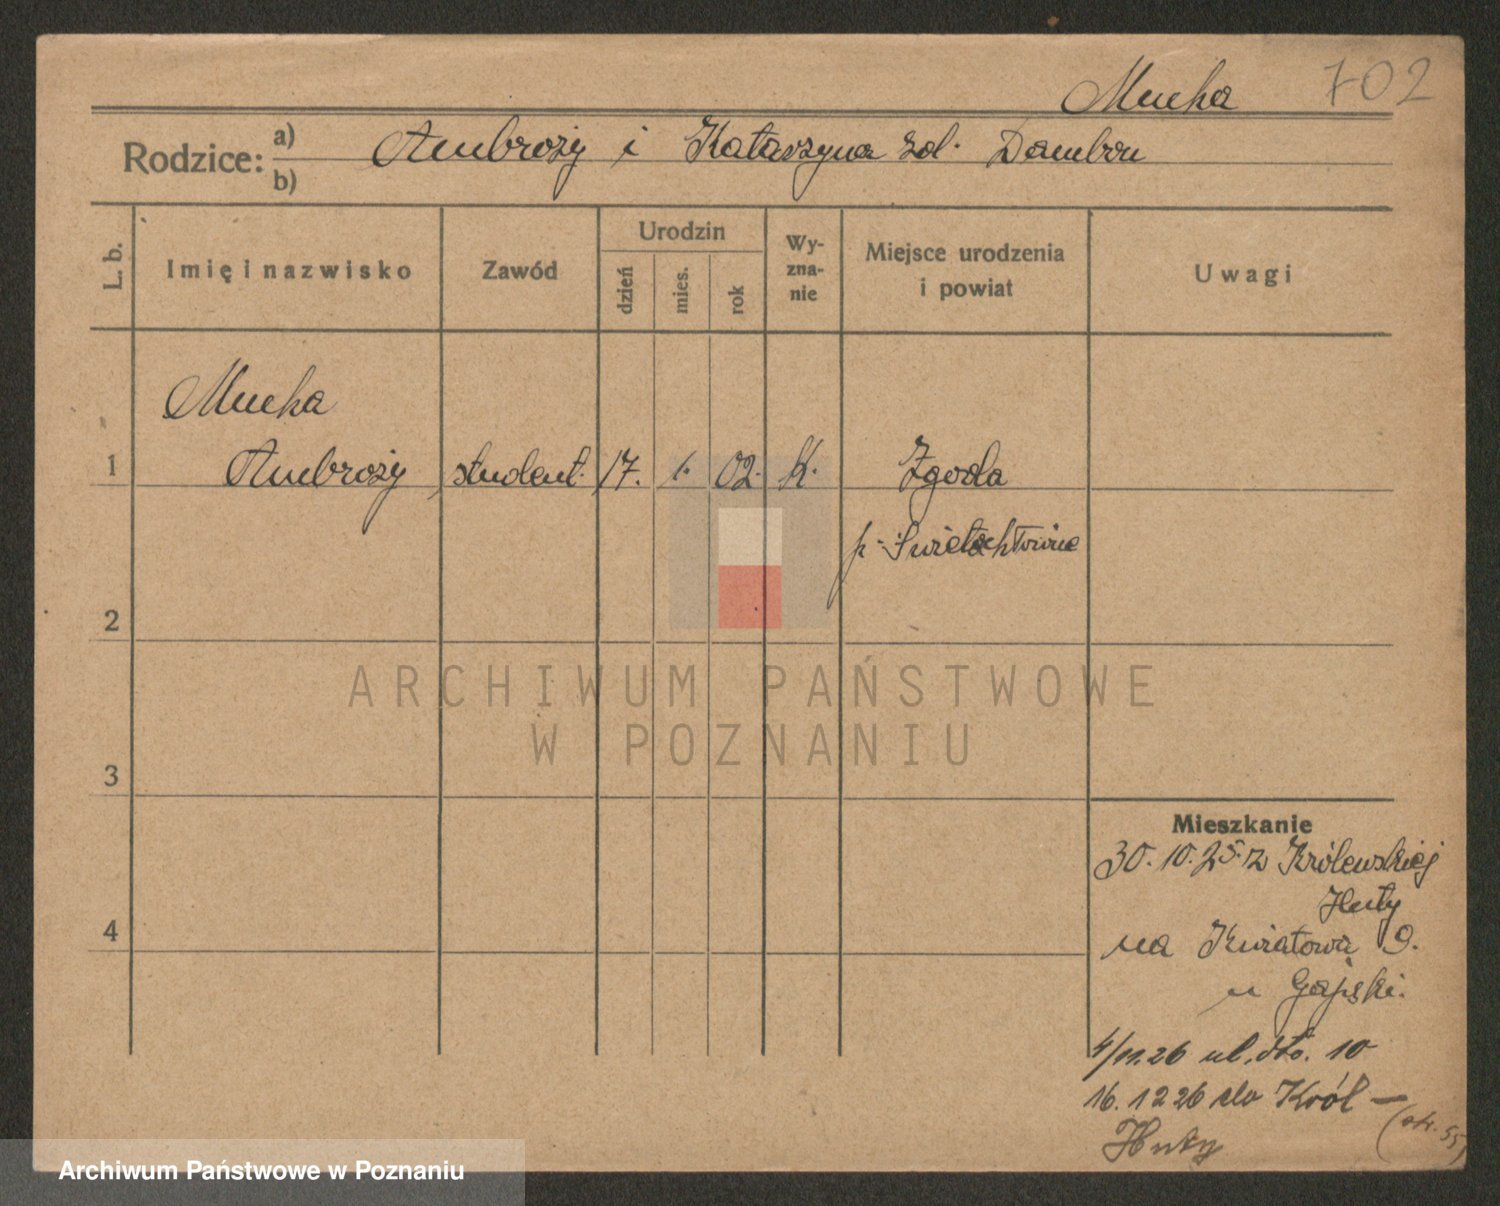 Mucha 702
Rodzice: a) Ambroży i Katarzyna zd. Dambon
b)
L. b. Imię i nazwisko Zawód Urodzin dzień mies. rok Wy-zna-nie Miejsce urodzenia i powiat Uwagi
Mucha
1 Ambroży student. 17. 1. 02. K. Zgoda
p. Świętochłowice
2
ARCHIWUM PAŃSTWOWE
W POZNANIU
3
Mieszkanie
30.10.25. z Królewskiej
Huty
4
na Kwiatowa 9.
u Gajski.
4/11.26 ul. dto. 10
16.12 26 do Król —
Huty
Archiwum Państwowe w Poznaniu